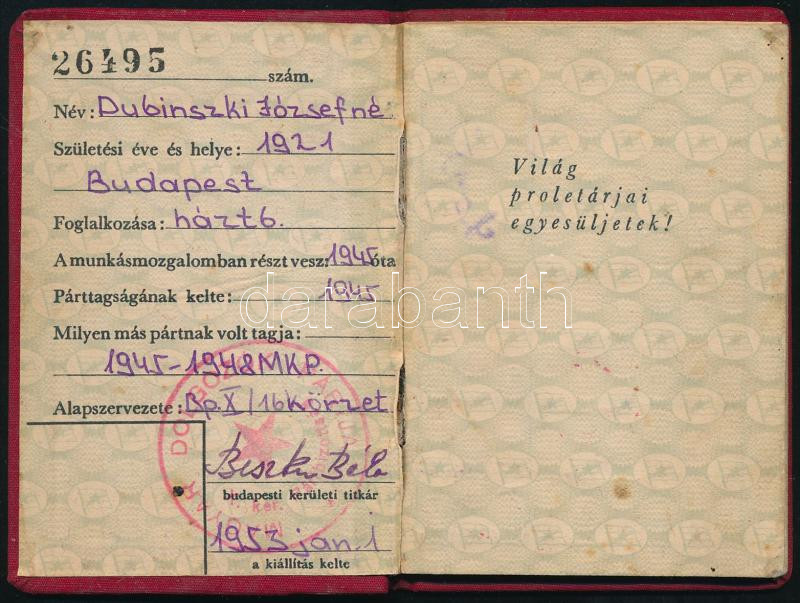 26495 szám.
Név: Dubinszki Józsefné
Születési éve és helye: 1921
Budapest
Foglalkozása: háztb.
A munkásmozgalomban részt vesz: 1945 óta
Párttagságának kelte: 1945
Milyen más pártnak volt tagja:
1945-1948 MKP.
Alapszervezete: Bp. X/16 körzet
Beszkw Béla
budapesti kerületi titkár
1953 jan. 1
a kiállítás kelte
Világ
proletárjai
egyesüljetek!
darabanth